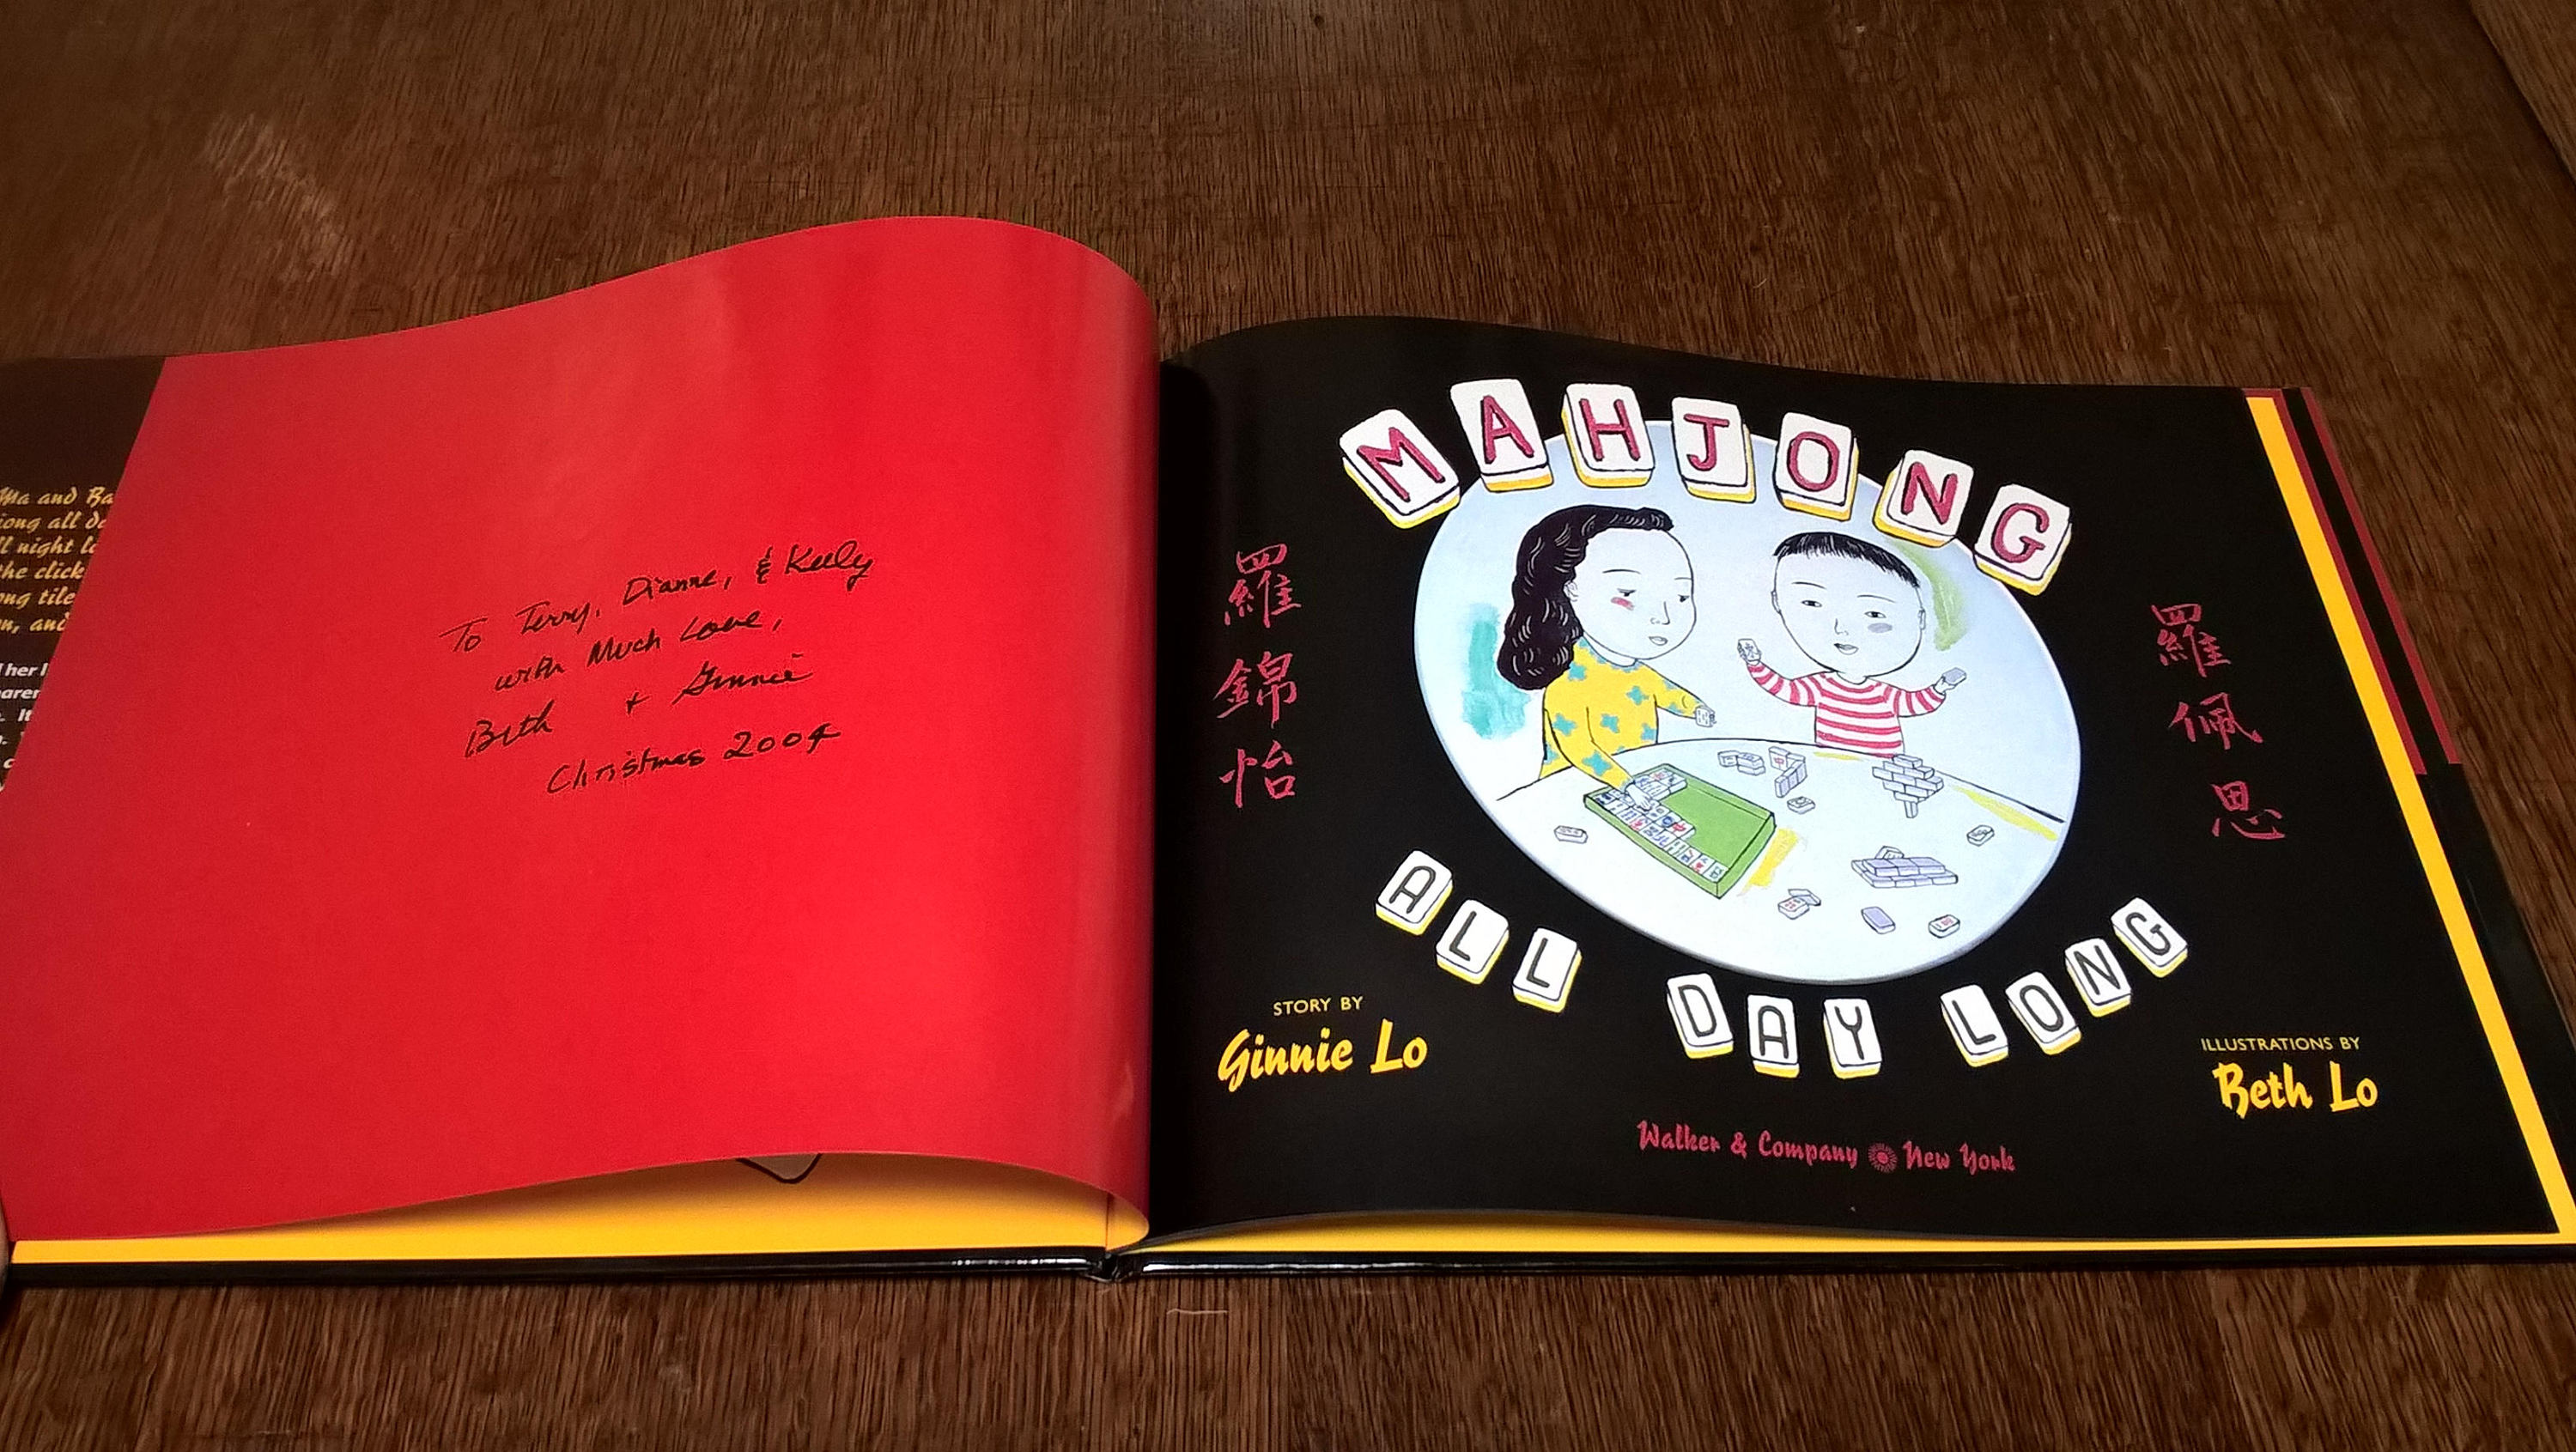 Ma and Ba
jong all da
ll night lo
the click
ong tile
n, and
her l
paren
. It
To Terry, Dianne, & Keely
with Much Love,
Beth + Ginnie
Christmas 2004
MAHJONG
羅錦怡
羅佩思
ALL DAY LONG
STORY BY
Ginnie Lo
ILLUSTRATIONS BY
Beth Lo
Walker & Company New York